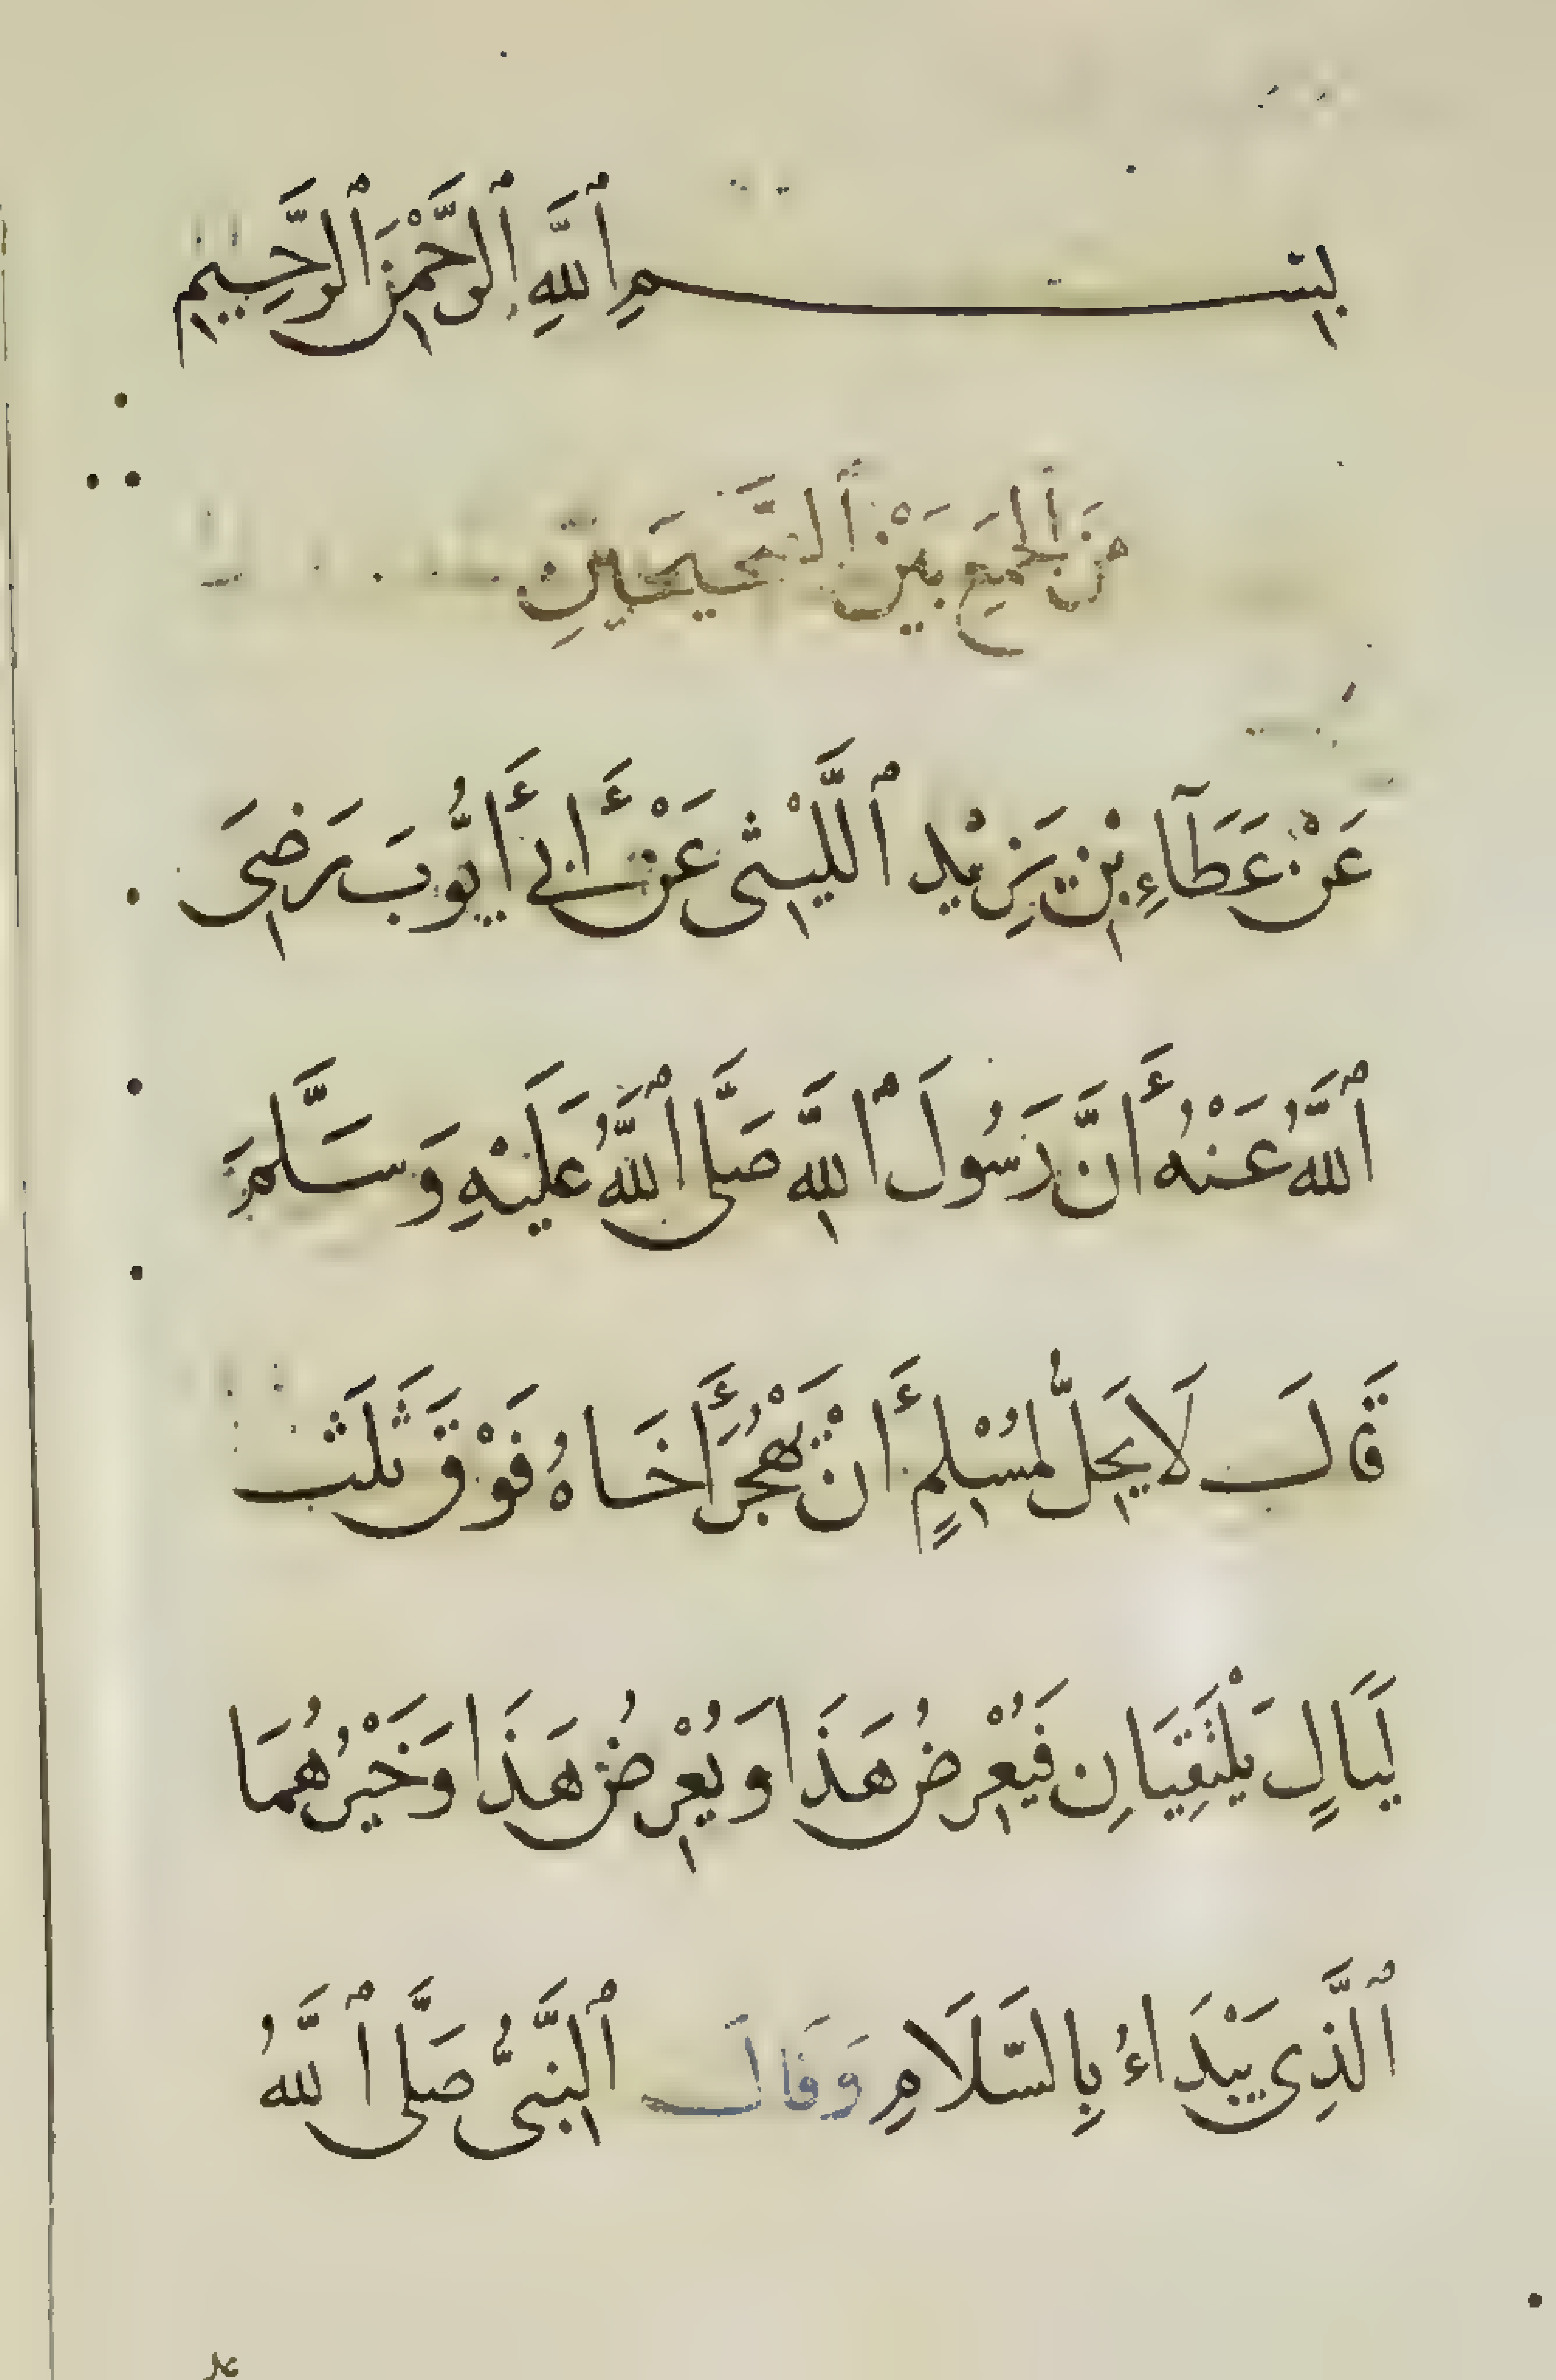 بِسْمِ ٱللَّهِ ٱلرَّحْمٰنِ ٱلرَّحِيمِ
مِنَ ٱلْجَمْعِ بَيْنَ ٱلصَّحِيحَيْنِ
عَنْ عَطَآءِ بْنِ يَزِيْدَ ٱللَّيْثِى عَنْ أَبِى أَيُّوبَ رَضِىَ
ٱللَّهُ عَنْهُ أَنَّ رَسُولَ ٱللَّهِ صَلَّى ٱللَّهُ عَلَيْهِ وَسَلَّمَ
قَالَ لَا يَحِلُّ لِمُسْلِمٍ أَنْ يَهْجُرَ أَخَاهُ فَوْقَ ثَلَثِ
لَيَالٍ يَلْتَقِيَانِ فَيُعْرِضُ هَذَا وَيُعْرِضُ هَذَا وَخَيْرُهُمَا
ٱلَّذِى يَبْدَاءُ بِالسَّلَامِ وَقَالَ ٱلنَّبِىُّ صَلَّى ٱللَّهُ
عل